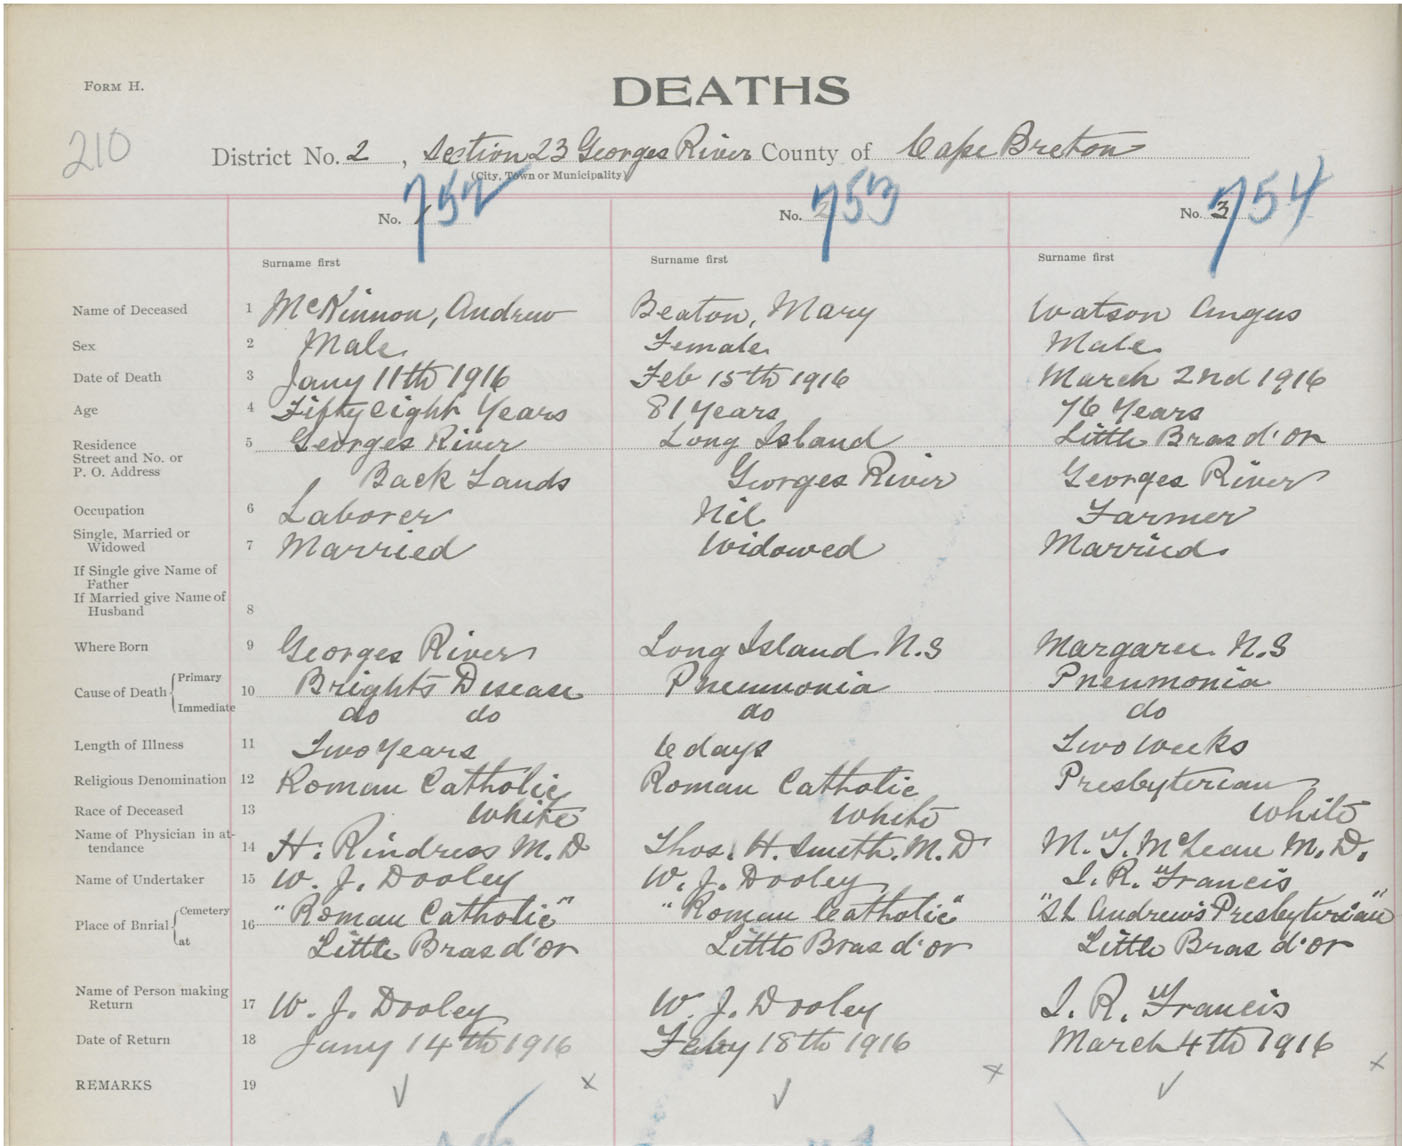 FORM H.
DEATHS
210
District No. 2 , Section 23 Georges River County of Cape Breton
(City, Town or Municipality)
No. 1 752 No. 2 753 No. 3 754
Surname first Surname first Surname first
Name of Deceased 1 McKinnon, Andrew Beaton, Mary Watson Angus
Sex 2 Male Female Male
Date of Death 3 Jany 11th 1916 Feb 15th 1916 March 2nd 1916
Age 4 Fifty eight Years 81 Years 76 Years
Residence 5 Georges River Long Island Little Bras d'or
Street and No. or
P. O. Address Back Lands Georges River Georges River
Occupation 6 Laborer Nil Farmer
Single, Married or
Widowed 7 Married Widowed Married
If Single give Name of
Father
If Married give Name of
Husband 8
Where Born 9 Georges River Long Island N.S Margaree N.S
Cause of Death Primary 10 Brights Disease Pneumonia Pneumonia
Immediate do do do do
Length of Illness 11 Two Years 6 days Two weeks
Religious Denomination 12 Roman Catholic Roman Catholic Presbyterian
Race of Deceased 13 White White White
Name of Physician in at-
tendance 14 H. Rindress M.D Thos. H. Smith. M.D M. T. McLean M.D.
Name of Undertaker 15 W. J. Dooley W. J. Dooley I. R. Francis
Place of Bnrial Cemetery 16 "Roman Catholic" "Roman Catholic" "St Andrew's Presbyterian"
at Little Bras d'or Little Bras d'or Little Bras d'or
Name of Person making
Return 17 W. J. Dooley W. J. Dooley I. R. Francis
Date of Return 18 Jany 14th 1916 Feby 18th 1916 March 4th 1916
REMARKS 19